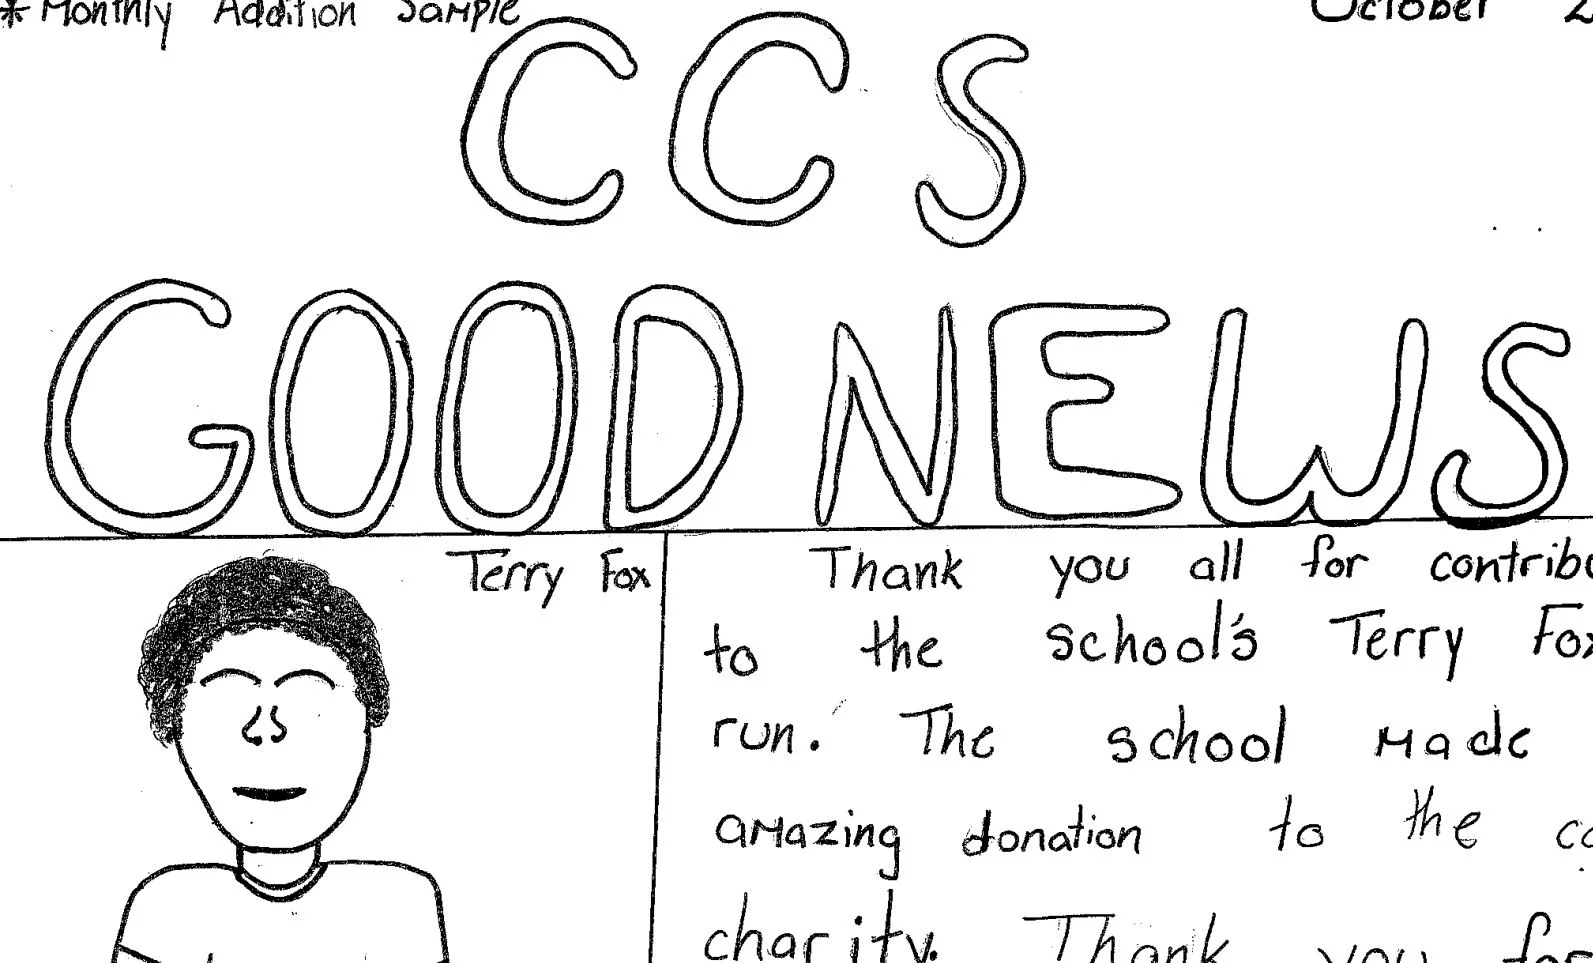 * Monthly Addition Sample October 2
CCS
GOOD NEWS
Terry Fox
Thank you all for contribu
to the school's Terry Fox
run. The school made
amazing donation to the
charity. Thank you for